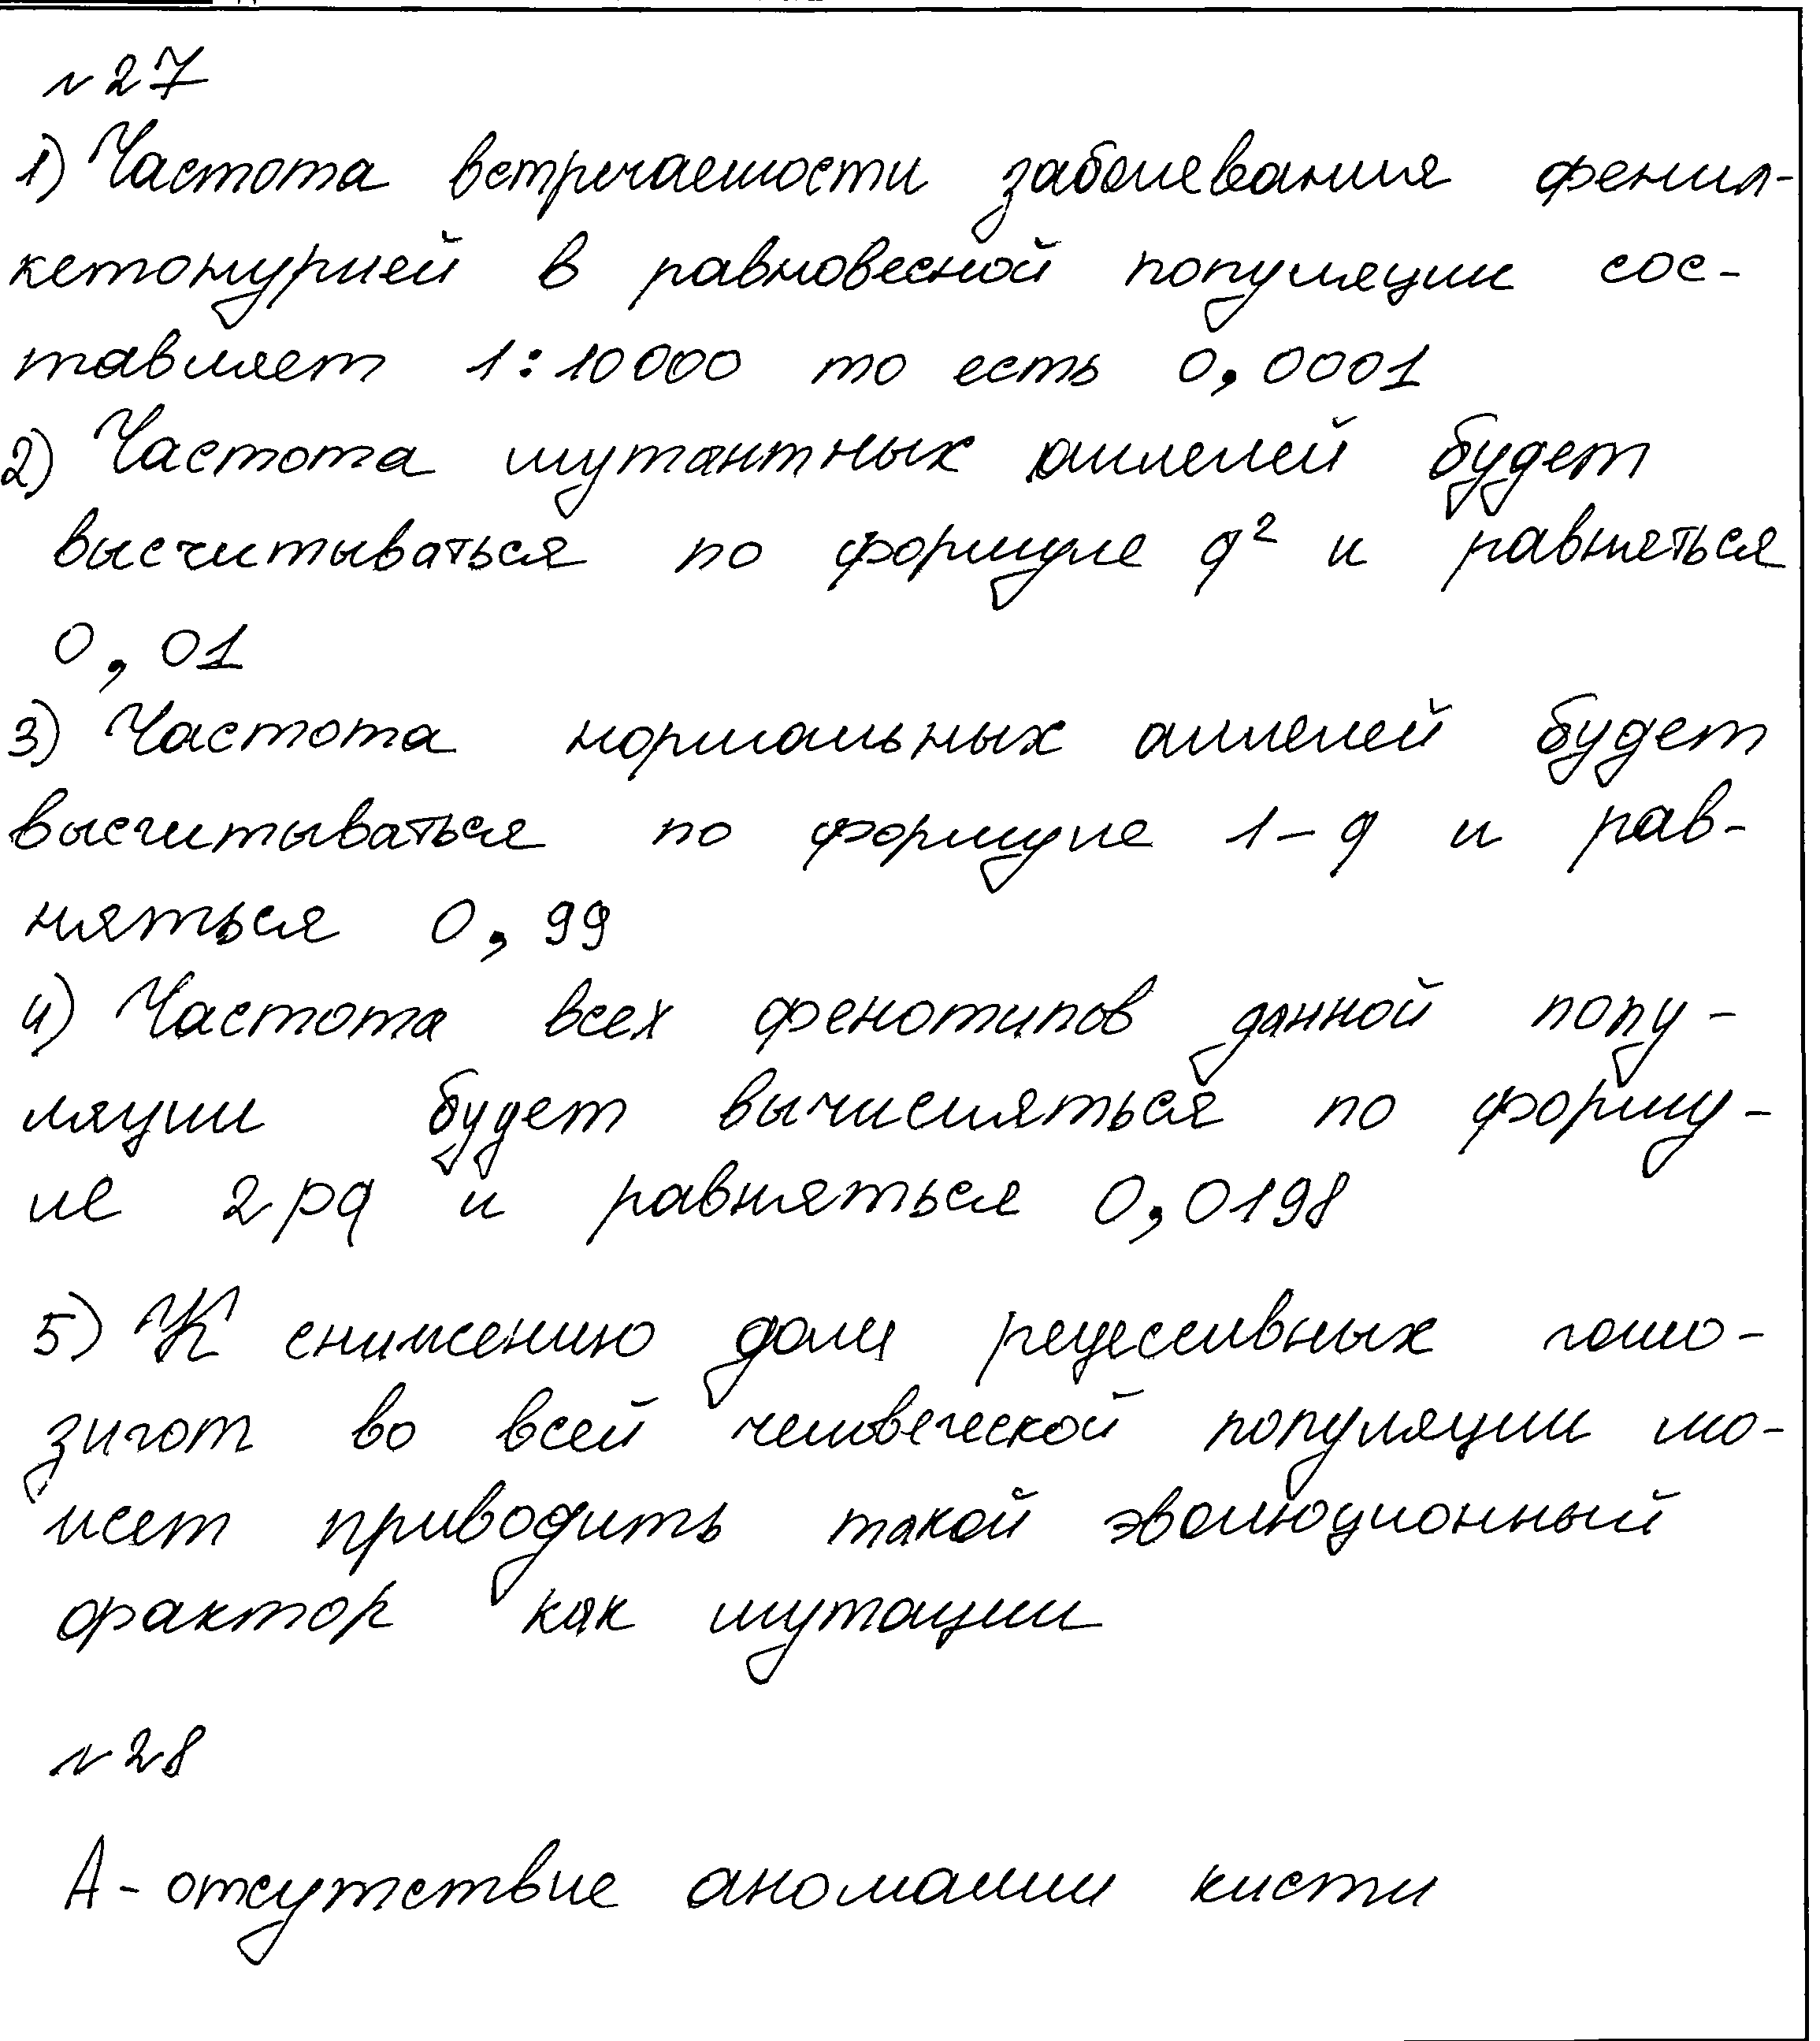 №27
1) Частота встречаемости заболевания фенил-
кетонурией в равновесной популяции сос-
тавляет 1:10000 то есть 0,0001
2) Частота мутантных аллелей будет
высчитываться по формуле q² и равняться
0,01
3) Частота нормальных аллелей будет
высчитываться по формуле 1-q и рав-
няться 0,99
4) Частота всех фенотипов данной попу-
ляции будет вычисляться по форму-
ле 2pq и равняться 0,0198
5) К снижению доли рецессивных гомо-
зигот во всей человеческой популяции мо-
жет приводить такой эволюционный
фактор как мутации
№28
А - отсутствие аномалии кисти